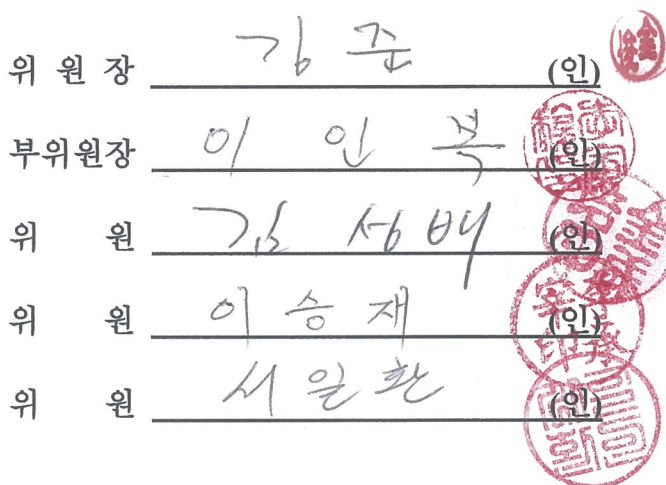 위 원 장 김 준 (인)
부위원장 이 인 복 (인)
위 원 김 성 배 (인)
위 원 이 승 재 (인)
위 원 서 일 환 (인)